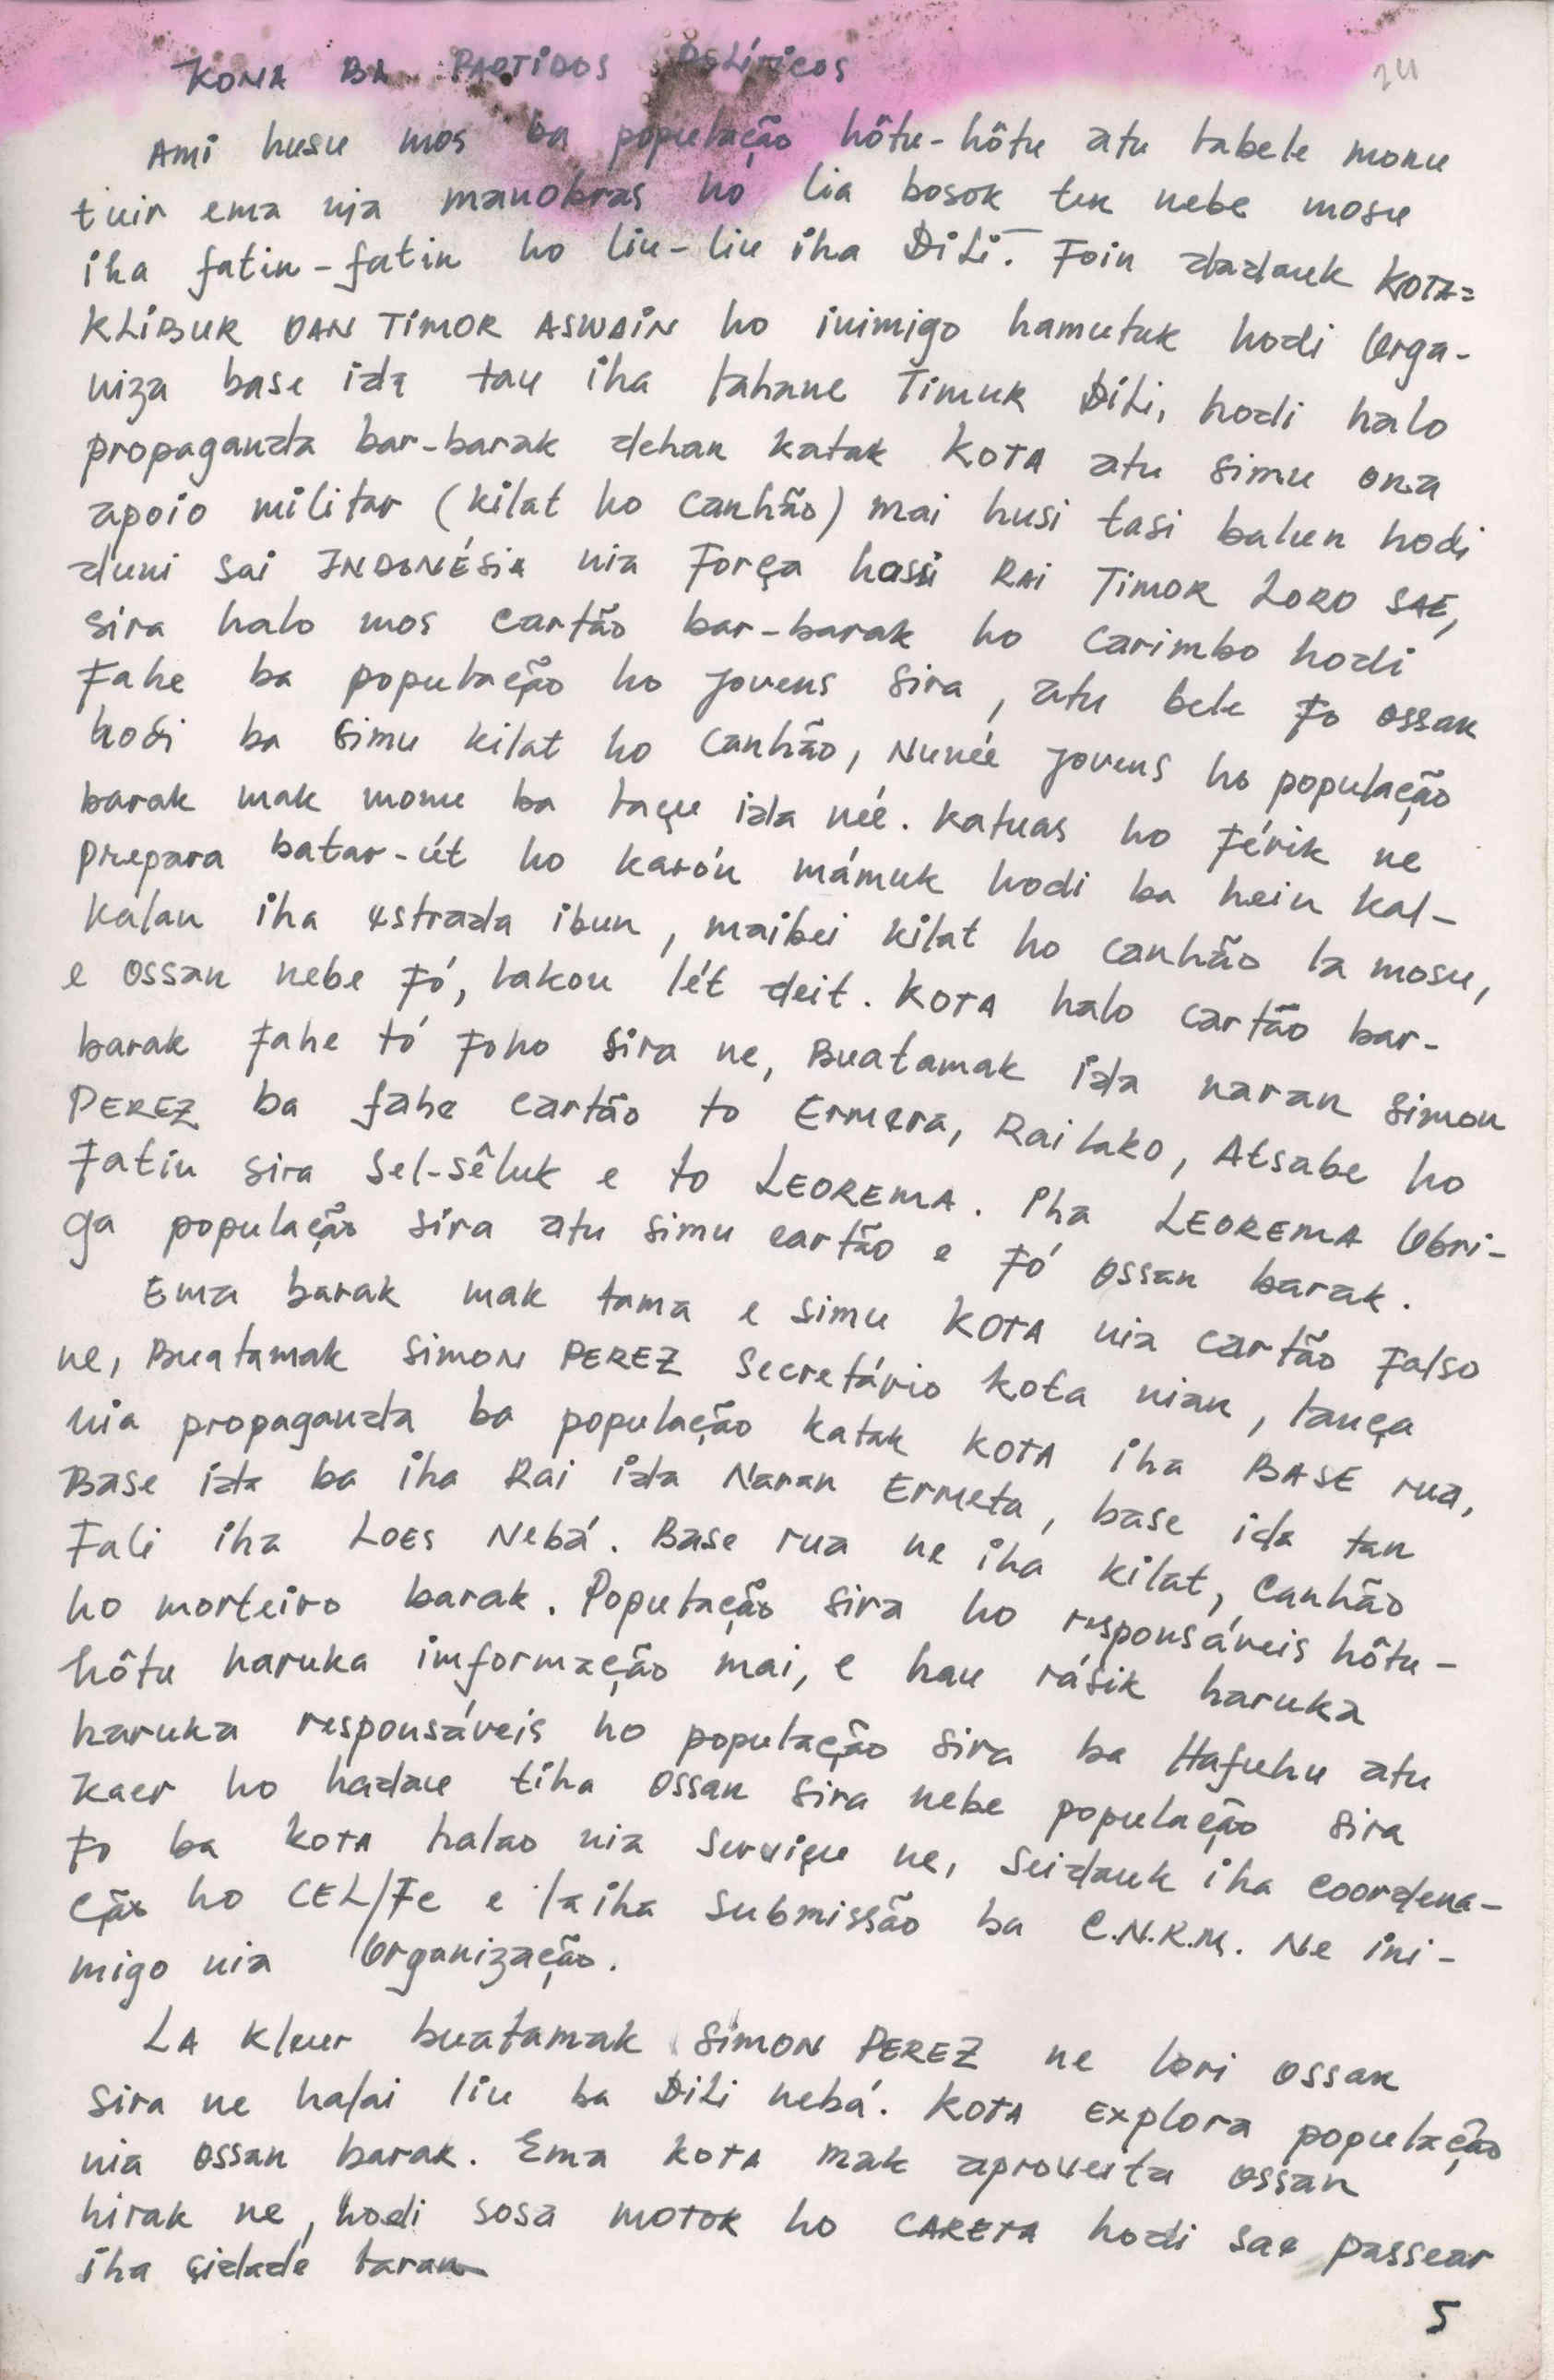 KONA BA PARTIDOS POLÍTICOS
24
Ami husu mos ba população hôtu-hôtu atu labele monu
tuir ema nia manobras hó lia bosok ten nebe mosu
iha fatin-fatin ho liu-liu iha DiLi. Foin dadauk KOTA=
KLIBUR OAN TIMOR ASWAIN ho inimigo hamutuk hodi Orga-
niza base ida tau iha lahane Timur DiLi, hodi halo
propaganda bar-barak dehan katak KOTA atu simu ona
apoio militar (kilat ho canhão) mai husi tasi balun hodi
duni sai INDONÉSIA nia Força hosi RAI TIMOR LORO SAE,
sira halo mos cartão bar-barak ho carimbo hodi
Fahe ba população ho jovens sira, atu bele Fo ossan
hodi ba simu kilat ho canhão, Nuneé jovens ho população
barak mak monu ba laçu ida neé. Katuas ho Férik ne
prepara batar-út ho karón mámuk hodi ba hein kal-
kalan iha estrada ibun, maibei kilat ho canhão la mosu,
e ossan nebe Fó, lakou lét deit. KOTA halo cartão bar-
barak Fahe tó Foho sira ne, Buatamak ida naran Simon
PEREZ ba fahe cartão to Ermera, Railako, Atsabe ho
Fatin sira Sel-sêluk e to LEOREMA. Iha LEOREMA Obri-
ga população sira atu simu cartão e Fó ossan barak.
Ema barak mak tama e simu KOTA nia cartão Falso
ne, Buatamak SIMON PEREZ Secretário Kota nian, lança
nia propaganda ba população katak KOTA iha BASE rua,
Base ida ba iha Rai ida Naran Ermeta, base ida tan
Fali iha LOES Nebá. Base rua ne iha kilat, Canhão
ho morteiro barak. População sira ho responsáveis hôtu-
hôtu haruka imformação mai, e hau rásik haruka
haruka responsáveis ho população sira ba Hafuhu atu
kaer ho hadau tiha ossan sira nebe população sira
Fo ba KOTA halao nia serviçu ne, seidauk iha coordena-
ção ho CEL/Fc e laiha submissão ba C.N.R.M. Ne ini-
migo nia Organização.
LA kleur buatamak SIMON PEREZ ne lori ossan
sira ne halai liu ba DiLi nebá. KOTA explora população
nia ossan barak. Ema KOTA mak aproveita ossan
hirak ne, hodi sosa MOTOR ho CARETA hodi sae passear
iha çidade laran
5